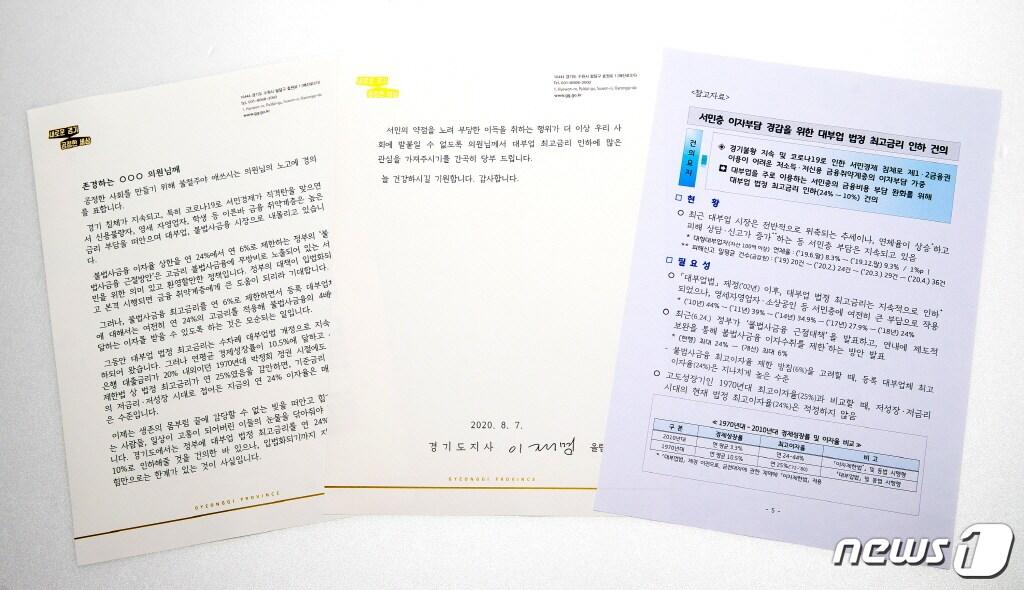 새로운 경기
공정한 세상
16444 경기도 수원시 팔달구 효원로 1 (매산로3가)
Tel. 031-8008-2000
1, Hyowon-ro, Paldal-gu, Suwon-si, Gyeonggi-do
www.gg.go.kr
존경하는 ○○○ 의원님께
공정한 사회를 만들기 위해 불철주야 애쓰시는 의원님의 노고에 경의
를 표합니다.
경기 침체가 지속되고, 특히 코로나19로 서민경제가 직격탄을 맞으면
서 신용불량자, 영세 자영업자, 학생 등 이른바 금융 취약계층은 높은
금리 부담을 떠안으며 대부업, 불법사금융 시장으로 내몰리고 있습니
다.
불법사금융 이자율 상한을 연 24%에서 연 6%로 제한하는 정부의 '불
법사금융 근절방안'은 고금리 불법사금융에 무방비로 노출되어 있는 서
민을 위한 의미 있고 환영할만한 정책입니다. 정부의 대책이 입법화되
고 본격 시행되면 금융 취약계층에게 큰 도움이 되리라 기대합니다.
그러나, 불법사금융 최고금리를 연 6%로 제한하면서 등록 대부업
에 대해서는 여전히 연 24%의 고금리를 적용해 불법사금융의 4배
달하는 이자를 받을 수 있도록 하는 것은 모순되는 일입니다.
그동안 대부업 법정 최고금리는 수차례 대부업법 개정으로 지속
하되어 왔습니다. 그러나 연평균 경제성장률이 10.5%에 달하고
은행 대출금리가 20% 내외이던 1970년대 박정희 정권 시절에도
제한법 상 법정 최고금리가 연 25%였음을 감안하면, 기준금리
의 저금리·저성장 시대로 접어든 지금의 연 24% 이자율은 매
은 수준입니다.
이제는 생존의 몸부림 끝에 감당할 수 없는 빚을 떠안고 힘
는 사람들, 일상이 고통이 되어버린 이들의 눈물을 닦아줘야
니다. 경기도에서는 정부에 대부업 법정 최고금리를 연 24%
10%로 인하해줄 것을 건의한 바 있으나, 입법화되기까지 지
힘만으로는 한계가 있는 것이 사실입니다.
GYEONGGI PROVINCE
새로운 경기
공정한 세상
16444 경기도 수원시 팔달구 효원로 1 (매산로3가)
Tel. 031-8008-2000
1, Hyowon-ro, Paldal-gu, Suwon-si, Gyeonggi-do
www.gg.go.kr
서민의 약점을 노려 부당한 이득을 취하는 행위가 더 이상 우리 사
회에 발붙일 수 없도록 의원님께서 대부업 최고금리 인하에 많은
관심을 가져주시기를 간곡히 당부 드립니다.
늘 건강하시길 기원합니다. 감사합니다.
2020. 8. 7.
경기도지사 이재명 올림
GYEONGGI PROVINCE
<참고자료>
서민층 이자부담 경감을 위한 대부업 법정 최고금리 인하 건의
건의요지
◈ 경기불황 지속 및 코로나19로 인한 서민경제 침체로 제1·2금융권
이용이 어려운 저소득·저신용 금융취약계층의 이자부담 가중
대부업을 주로 이용하는 서민층의 금융비용 부담 완화를 위해
대부업 법정 최고금리 인하(24%→10%) 건의
□ 현 황
○ 최근 대부업 시장은 전반적으로 위축되는 추세이나, 연체율이 상승*하고
피해 상담·신고가 증가**하는 등 서민층 부담은 지속되고 있음
* 대형대부업자(자산 100억 이상) 연체율 : ('19.6월) 8.3% → ('19.12월) 9.3% / 1%p↑
** 피해신고 일평균 건수(금감원) : ('19) 20건 → ('20.2.) 24건 → ('20.3.) 29건 → ('20.4.) 36건
□ 필요성
○ 「대부업법」 제정('02년) 이후, 대부업 법정 최고금리는 지속적으로 인하*
되었으나, 영세자영업자·소상공인 등 서민층에 여전히 큰 부담으로 작용
* ('10년) 44% → ('11년) 39% → ('14년) 34.9% → ('17년) 27.9% → ('18년) 24%
○ 최근(6.24.) 정부가 '불법사금융 근절대책'을 발표하고, 연내에 제도적
보완을 통해 불법사금융 이자수취를 제한*하는 방안 발표
* (현행) 최대 24% → (개선) 최대 6%
- 불법사금융 최고이자율 제한 방침(6%)을 고려할 때, 등록 대부업체 최고
이자율(24%)은 지나치게 높은 수준
○ 고도성장기인 1970년대 최고이자율(25%)과 비교할 때, 저성장·저금리
시대의 현재 법정 최고이자율(24%)은 적정하지 않음
≪ 1970년대 - 2010년대 경제성장률 및 이자율 비교 ≫
구 분 경제성장률 최고이자율 비 고
2010년대 연 평균 3.3% 연 24~44% 「이자제한법」 및 동법 시행령
1970년대 연 평균 10.5% 연 25%('72~'80) 「대부업법」 및 동법 시행령
- 5 -
news1